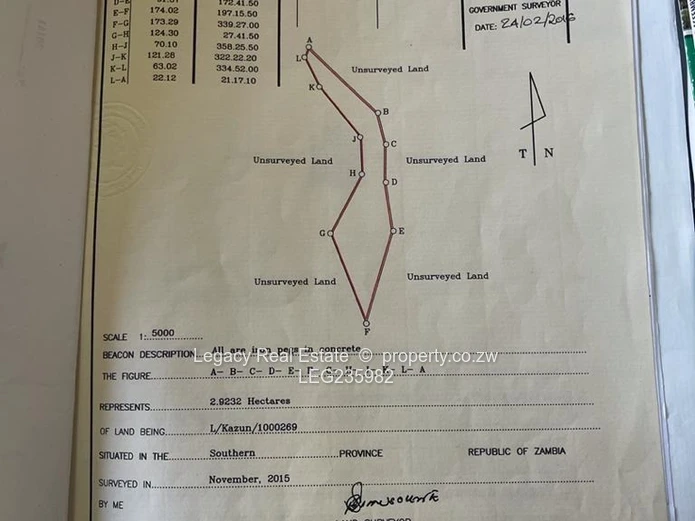 D-E 172.41.50
E-F 174.02 197.15.50
F-G 173.29 339.27.00
G-H 124.30 27.41.50
H-J 70.10 358.25.50
J-K 121.28 322.22.20
K-L 63.02 334.52.00
L-A 22.12 21.17.10
GOVERNMENT SURVEYOR
DATE: 24/02/2016
A
L
Unsurveyed Land
K
B
J
C
Unsurveyed Land
Unsurveyed Land
H
D
T N
G
E
Unsurveyed Land
Unsurveyed Land
F
SCALE 1: 5000
BEACON DESCRIPTION All are iron pegs in concrete
Legacy Real Estate © property.co.zw
THE FIGURE A- B- C- D- E- F- G- H- J- K- L- A
LEG235982
REPRESENTS 2.9232 Hectares
OF LAND BEING L/Kazun/1000269
SITUATED IN THE Southern PROVINCE REPUBLIC OF ZAMBIA
SURVEYED IN November, 2015
BY ME
LAND SURVEYOR